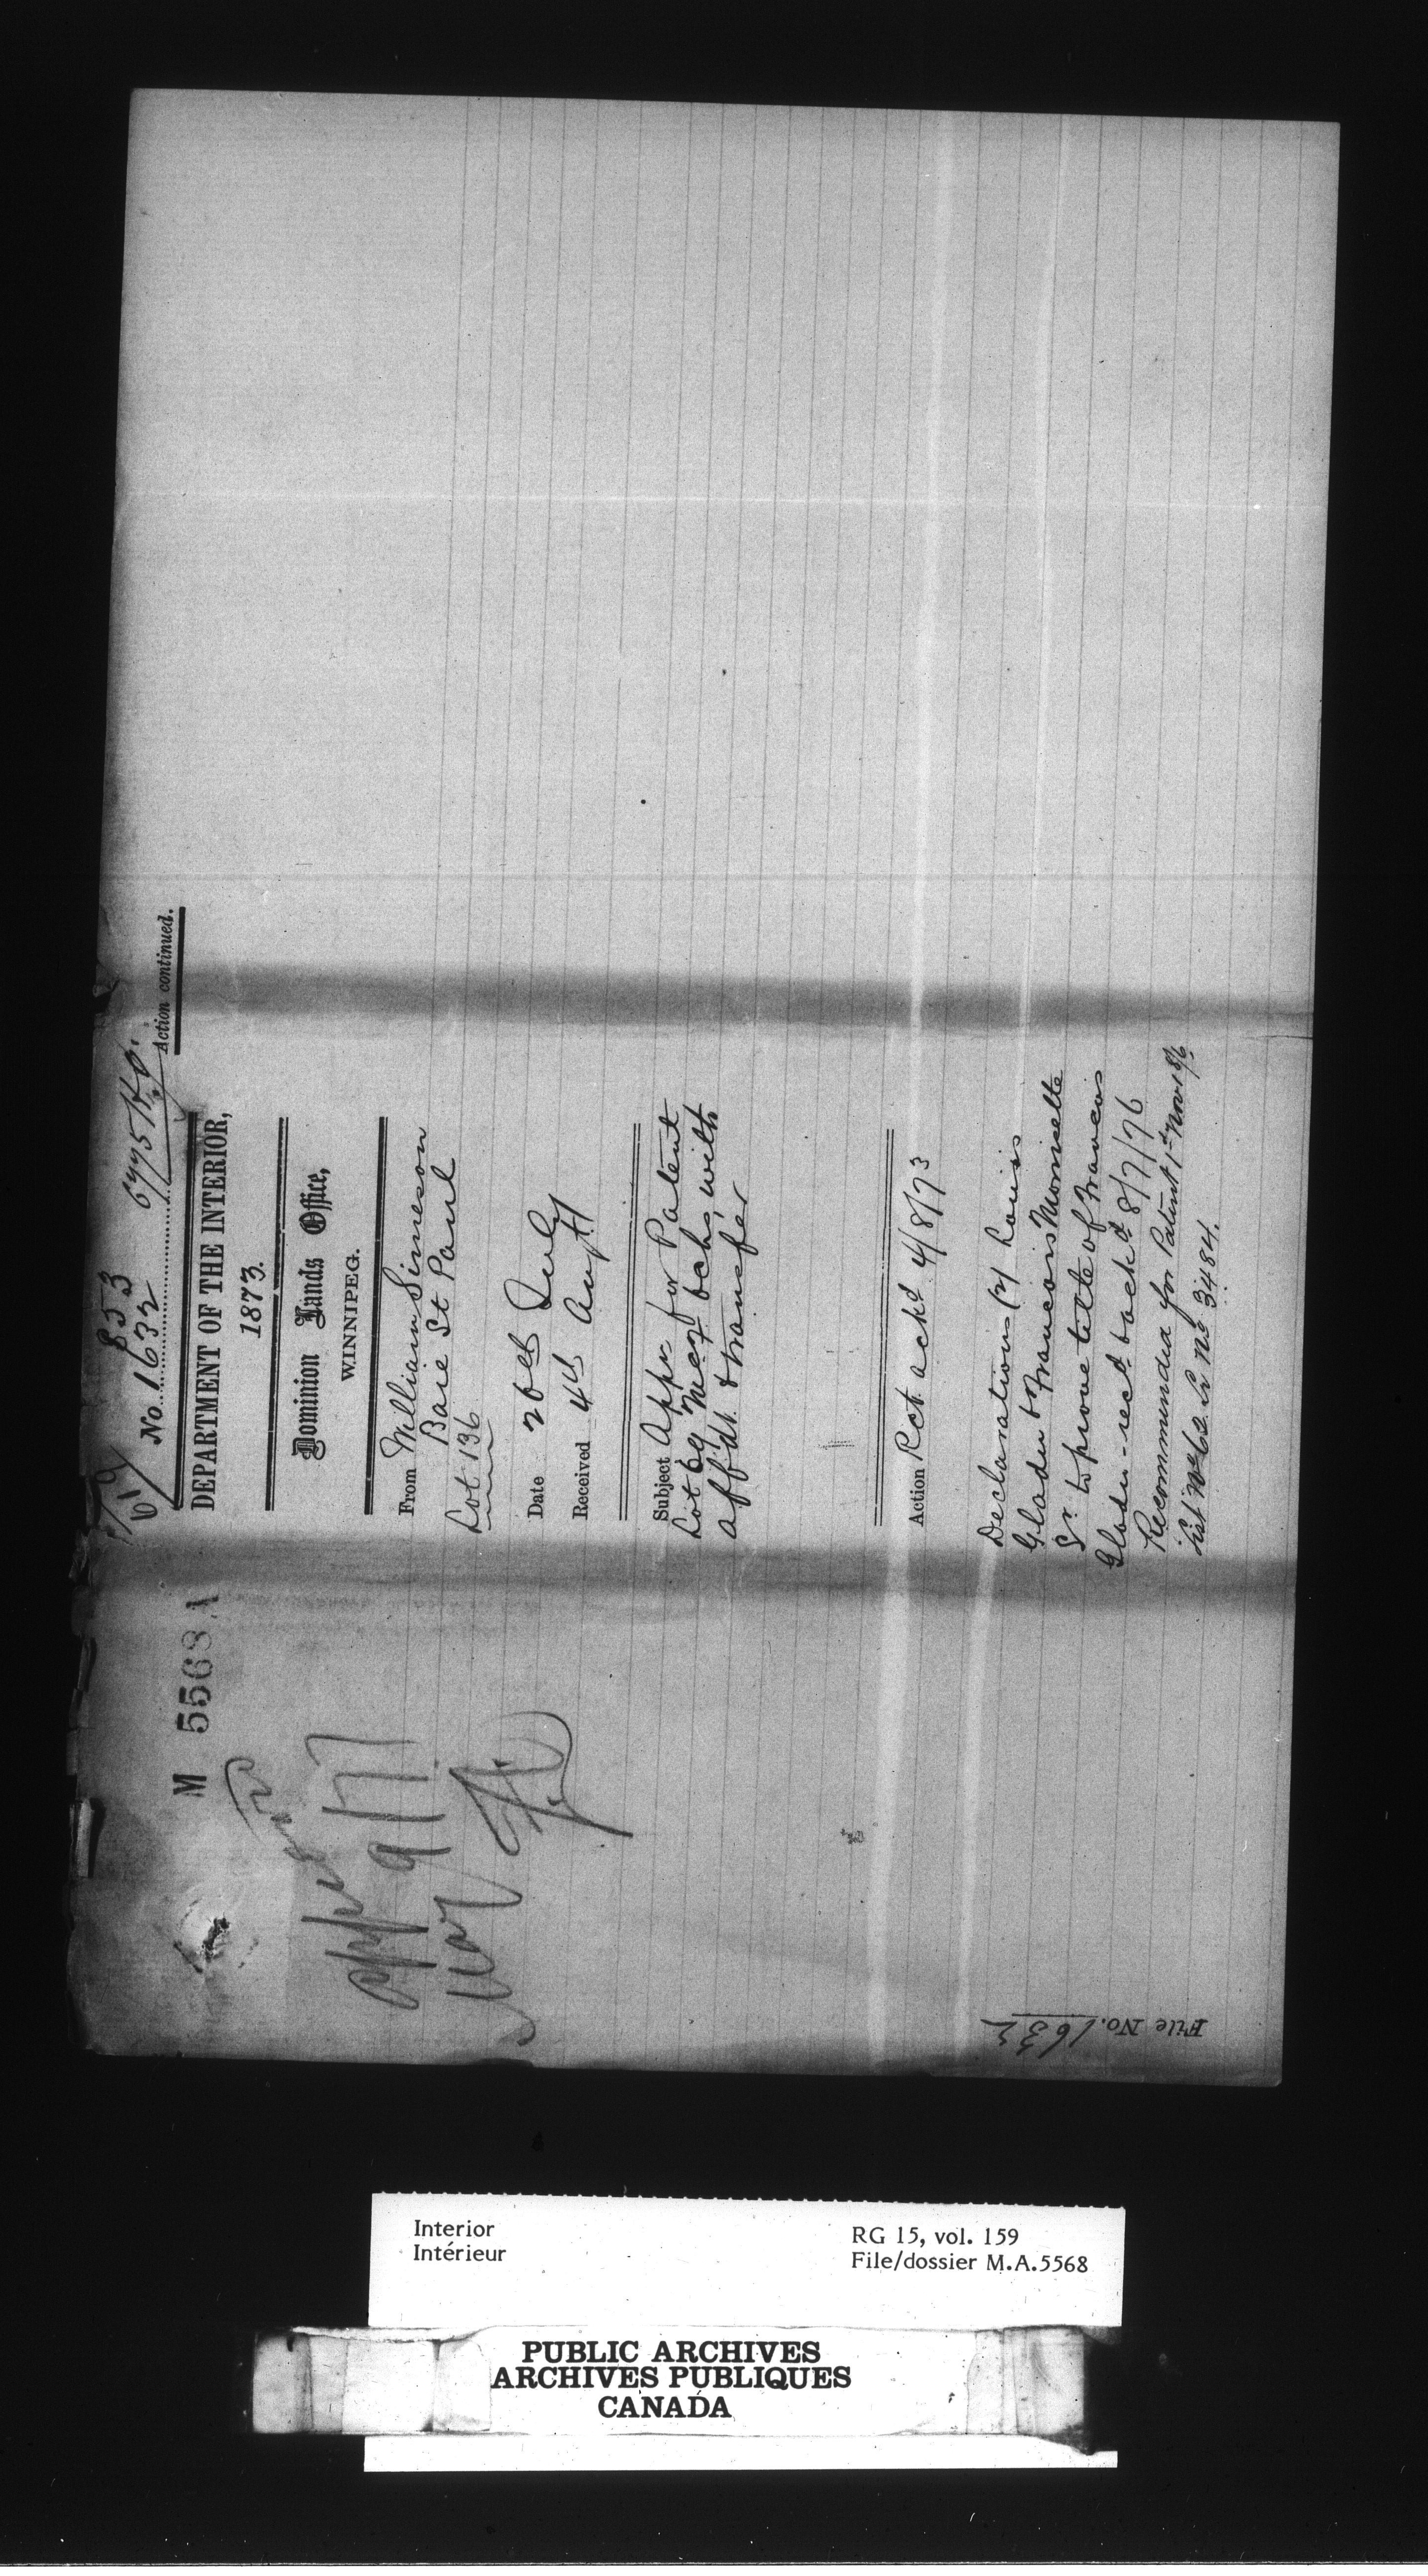 853
No. 1632
6775 H.O.
Action continued.
DEPARTMENT OF THE INTERIOR,
1873.
Dominion Lands Office,
WINNIPEG.
From William Sinneson
Baie St Paul
Lot 136
Date 26th July
Received 4th Augt
Subject Appn for Patent
Lot 69 with
affdt. & transfer
Action Rct. ackd 4/8/73
Declarations (2) Louis
Gladu & Francois Morisette
Sr. to prove title of Francois
Gladu - recd back 8/7/76
Recommended for Patent 1st Nov
List No Lr No 3484.
M 5568 A
Mar
File No. 1632
Interior
Intérieur
RG 15, vol. 159
File/dossier M.A.5568
PUBLIC ARCHIVES
ARCHIVES PUBLIQUES
CANADA